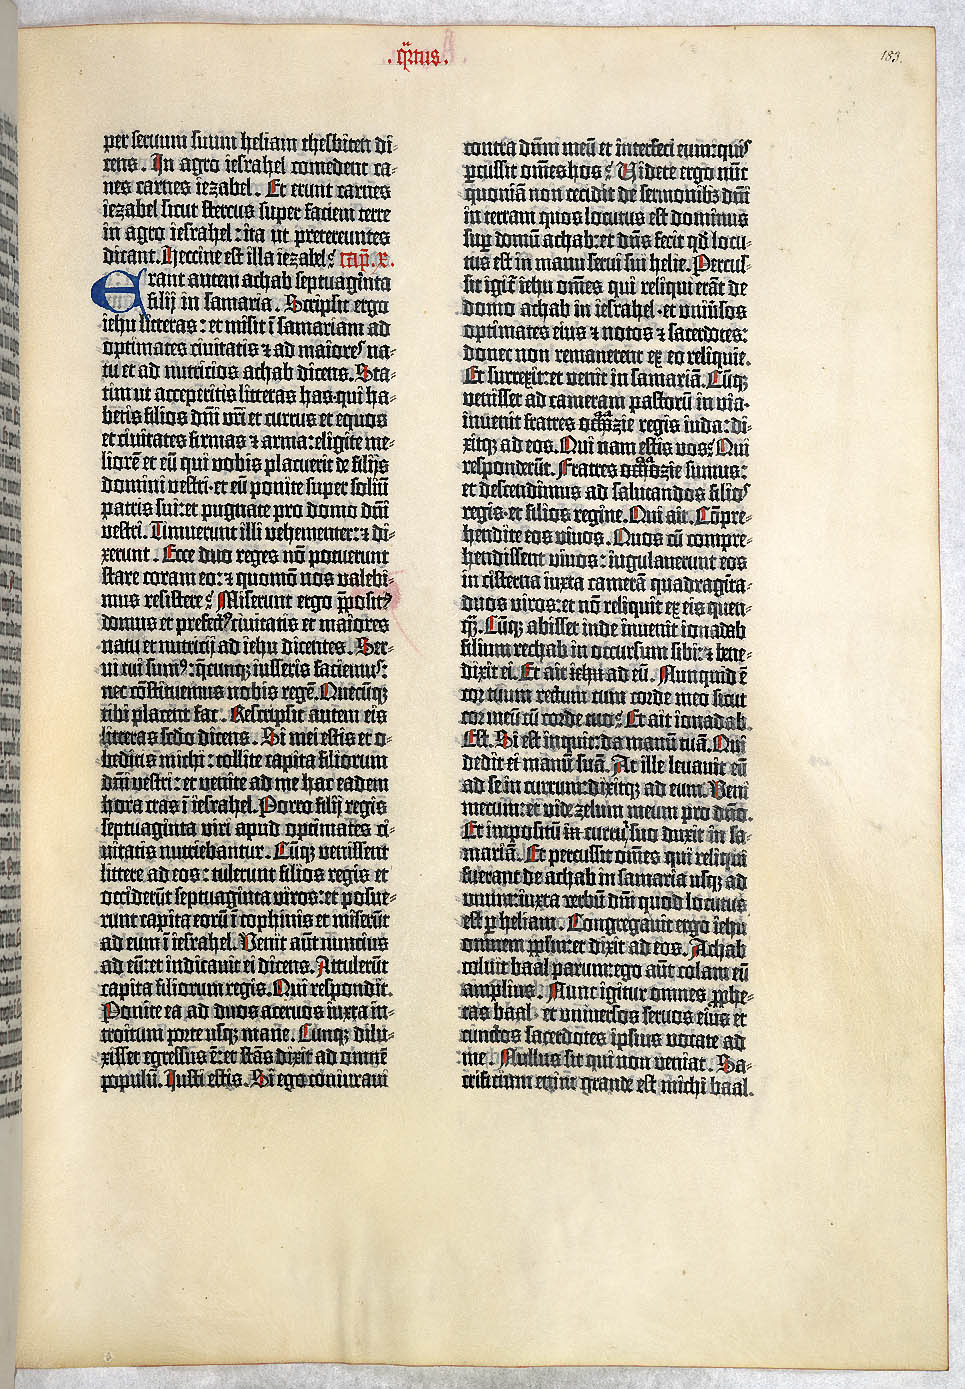 .q̄rtus.
183.
per servum suum heliam thesbiten di-
cens. In agro iesrahel comedent ca-
nes carnes iezabel. Et erunt carnes
iezabel sicut stercus super faciem terre
in agro iesrahel: ita ut pretereuntes
dicant. Heccine est illa iezabel? cap̄. x.
Erant autem achab septuaginta
filij in samaria. Scripsit ergo
iehu litteras: et misit ī samariam ad
optimates civitatis ⁊ ad maiores na-
tu et ad nutricios achab dicens. Sta-
tim ut acceperitis litteras has·qui ha-
betis filios dn̄i vr̄i et currus et equos
et civitates firmas ⁊ arma: eligite me-
liorē et eū qui vobis placuerit de filijs
domini vestri·et eū ponite super soliū
patris sui: et pugnate pro domo dn̄i
vestri. Timuerunt illi vehementer: ⁊ di-
xerunt. Ecce duo reges nō potuerunt
stare coram eo: ⁊ quomō nos valebi-
mus resistere? Miserunt ergo p̄posit⁹
domus et prefect⁹ civitatis et maiores
natu et nutricij ad iehu dicentes. Ser-
vi tui sum⁹: q̄cunq; iusseris faciemus:
nec cōstituemus nobis regē. Quecūq;
tibi placent fac. Rescripsit autem eis
litteras scd̄o dicens. Si mei estis et o-
beditis michi: tollite capita filiorum
dn̄i vestri: et venite ad me hac eadem
hora cras ī iesrahel. Porro filij regis
septuaginta viri apud optimates ci-
vitatis nutriebantur. Cūq; venissent
littere ad eos: tulerunt filios regis et
occiderūt septuaginta viros: et posue-
runt capita eorū ī cophinis et miserūt
ad eum ī iesrahel. Venit aūt nuncius
ad eū: et indicavit ei dicens. Attulerūt
capita filiorum regis. Qui respondit.
Ponite ea ad duos acervos iuxta in-
troitum porte usq; mane. Cumq; dilu-
xisset egressus ē: et stās dixit ad omnē
populū. Iusti estis. Si ego coniuravi
contra dn̄m meū et interfeci eum: quis
p̄cussit om̄es hos? Videte ergo nūc
quoniā non cecidit de sermonib; dn̄i
in terram quos locutus est dominus
sup̄ domū achab: et dn̄s fecit qd̄ locu-
tus est in manu servi sui helie. Percus-
sit igit̄ iehu om̄es qui reliqui erāt de
domo achab in iesrahel·et univ̄sos
optimates eius ⁊ notos ⁊ sacerdotes:
donec non remanerent ex eo reliquie.
Et surrexit: et venit in samariā. Cūq;
venisset ad cameram pastorū in via·
invenit fratres ochozie regis iuda: di-
xitq; ad eos. Qui nam estis vos? Qui
responderūt. Fratres ochozie sumus:
et descendimus ad salutandos filios
regis·et filios regine. Qui ait. Cōpre-
hendite eos vivos. Quos cū compre-
hendissent vivos: iugulaverunt eos
in cisterna iuxta camerā quadraginta-
duos viros: et nō reliquit ex eis quen-
q̄. Cūq; abisset inde invenit ionadab
filium rechab in occursum sibi: ⁊ bene-
dixit ei. Et ait iehu ad eū. Nunquid ē
cor tuum rectum cum corde meo sicut
cor meū cū corde tuo? Et ait ionadab.
Est. Si est inquit: da manū tuā. Qui
dedit ei manū suā. At ille levavit eū
ad se in currum: dixitq; ad eum. Veni
mecum: et vide zelum meum pro dn̄o.
Et impositū in curru suo duxit in sa-
mariā. Et percussit om̄es qui reliqui
fuerant de achab in samaria usq; ad
unum: iuxta verbū dn̄i quod locutus
est p̄ heliam. Congregavit ergo iehu
omnem pp̄lm: et dixit ad eos. Achab
coluit baal parum: ego aūt colam eū
amplius. Nunc igitur omnes p̄phe-
tas baal·et universos servos eius et
cunctos sacerdotes ipsius vocate ad
me. Nullus sit qui non veniat. Sa-
crificium enim grande est michi baal.